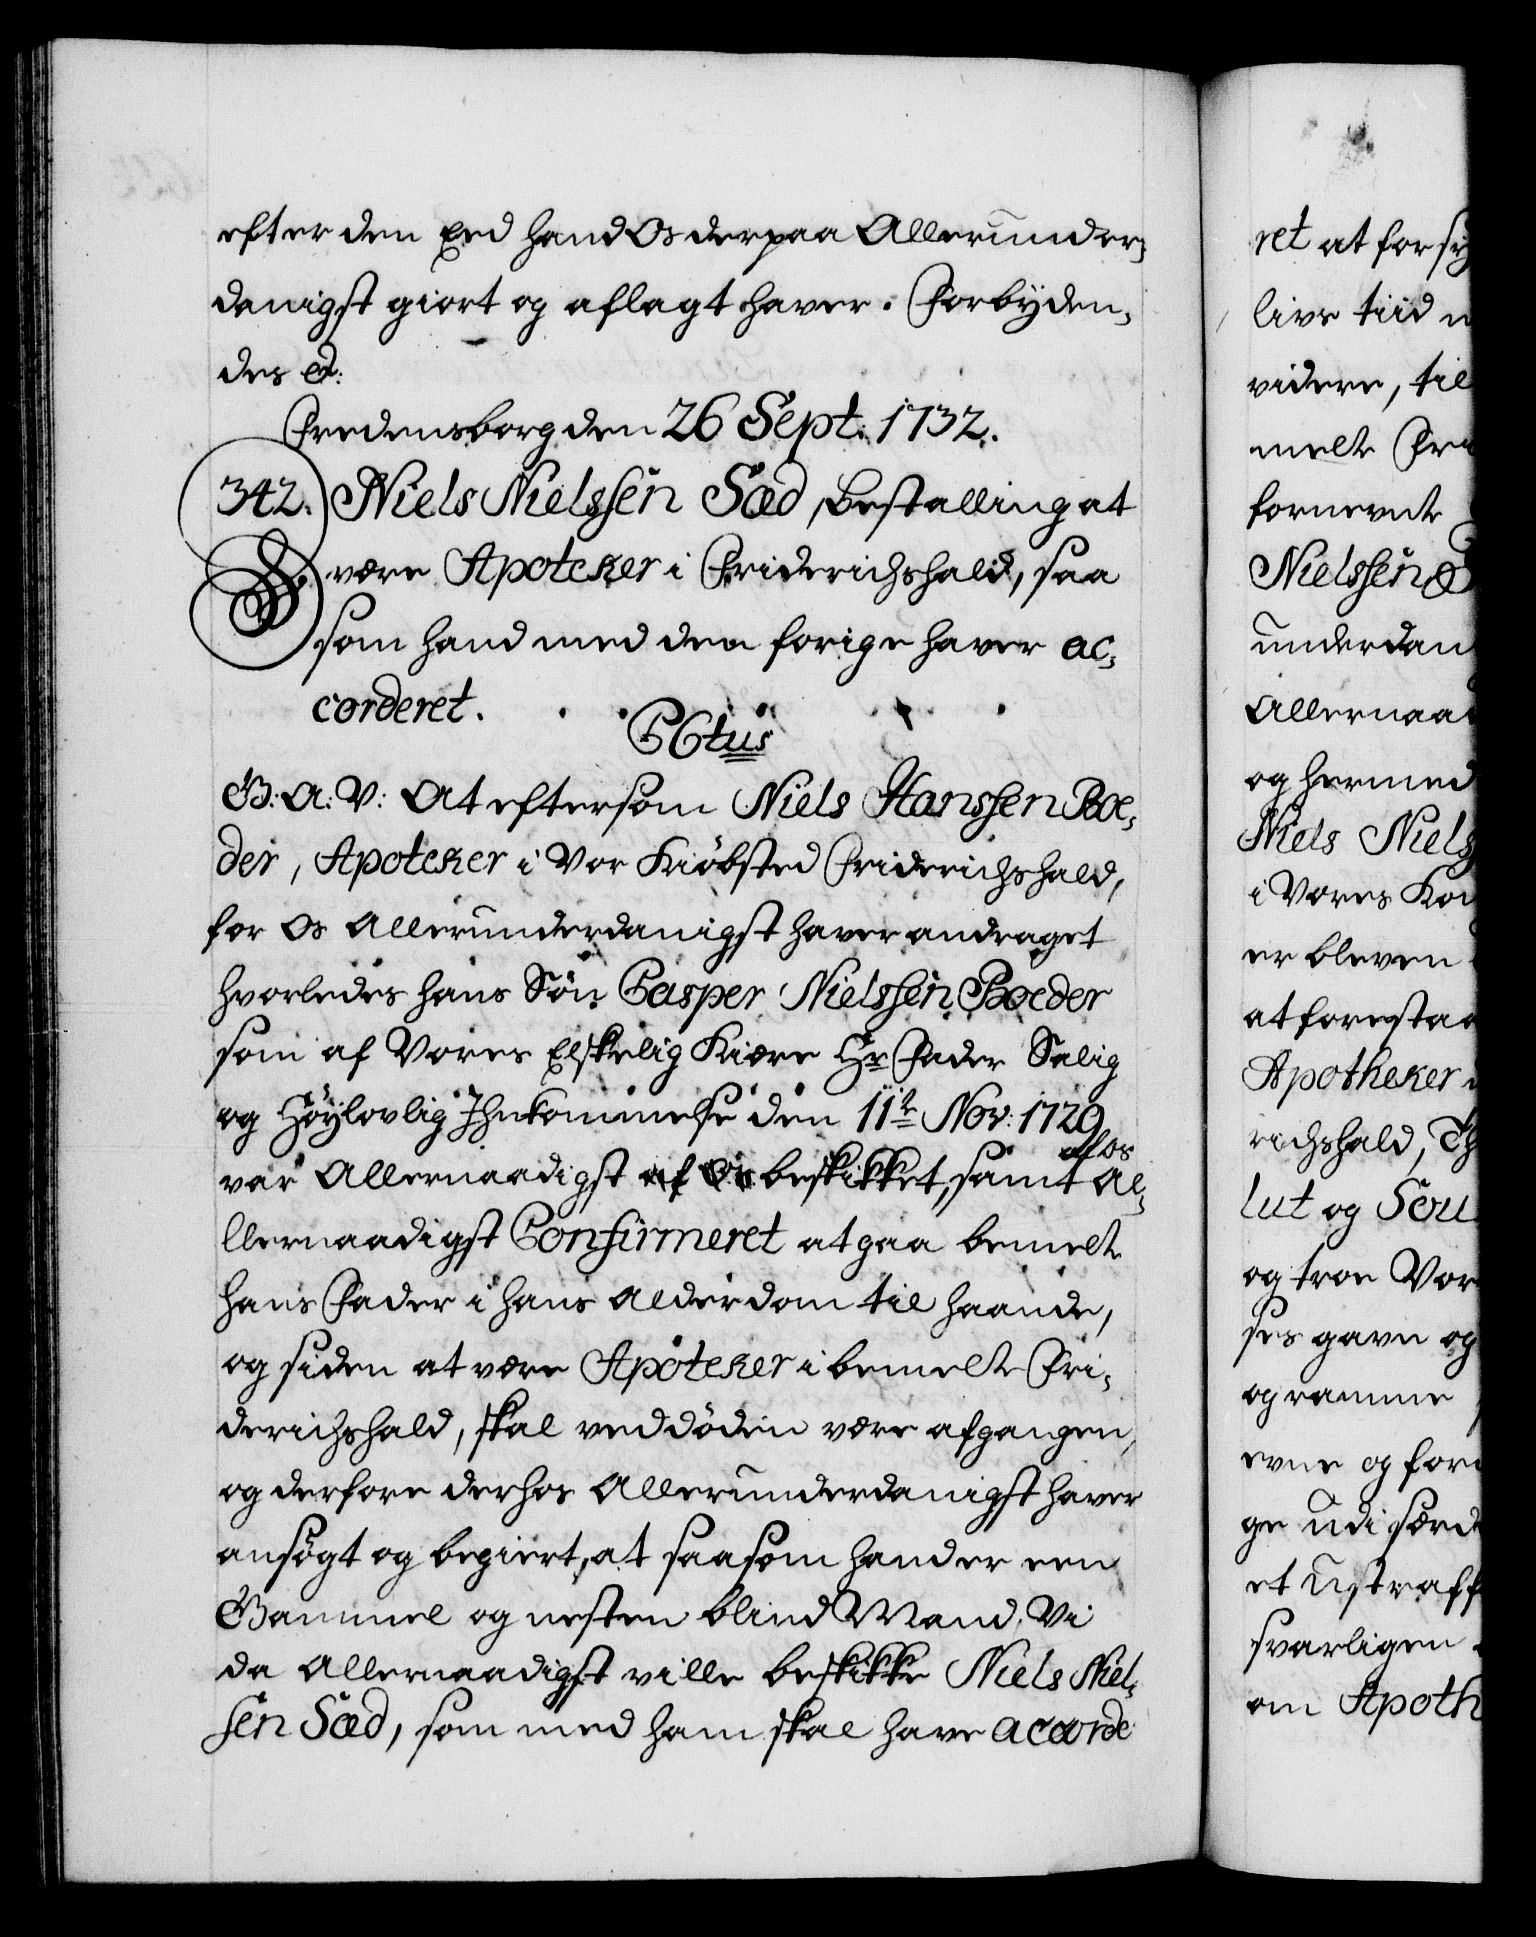 efter den Eed hand Os derpaa Allerunder-
danigst giort og aflagt haver. Forbyden-
des &:
Fredensborg den 26 Sept: 1732.
342. Niels Nielssen Sæd, Bestalling at
være Apoteker i Friderichshald, saa
som hand med den forige haver ac-
corderet.
CCtus
G: A: V: At eftersom Niels Hanssen Boe-
der, Apoteker i Vor Kiöbsted Friderichshald,
for Os Allerunderdanigst haver andraget
hvorledes hans Sön Casper Nielssen Boeder
som af Vores Elskelig Kiære Hr Fader Salig
og Höylovlig Ihukommelse den 11te Nov: 1729
var Allernaadigst af Os beskikket, samt af os Al-
llernaadigst Confirmeret at gaa bemelte
hans Fader i hans Alderdom til haande,
og siden at være Apoteker i bemelte Fri-
derichshald, skal ved döden være afgangen,
og derfore derhos Allerunderdanigst haver
ansögt og begiert, at saasom hand er een
Gammel og nesten blind Mand, Vi
da Allernaadigst ville beskikke Niels Niel-
sen Sæd, som med ham skal have accorde
ret at forsy
livs tiid
videre, til
melte Fri
fornevnte
Nielssen
underdan
Allernaa
og hermed
Niels Niels
i Vores
er bleven
at forestaa
Apotheker
richshald,
lut og Sou
og troe Vor
ses gavn og
og ramme
evne og for
ge udi særd
et ustraff
svarligen
om Apoth